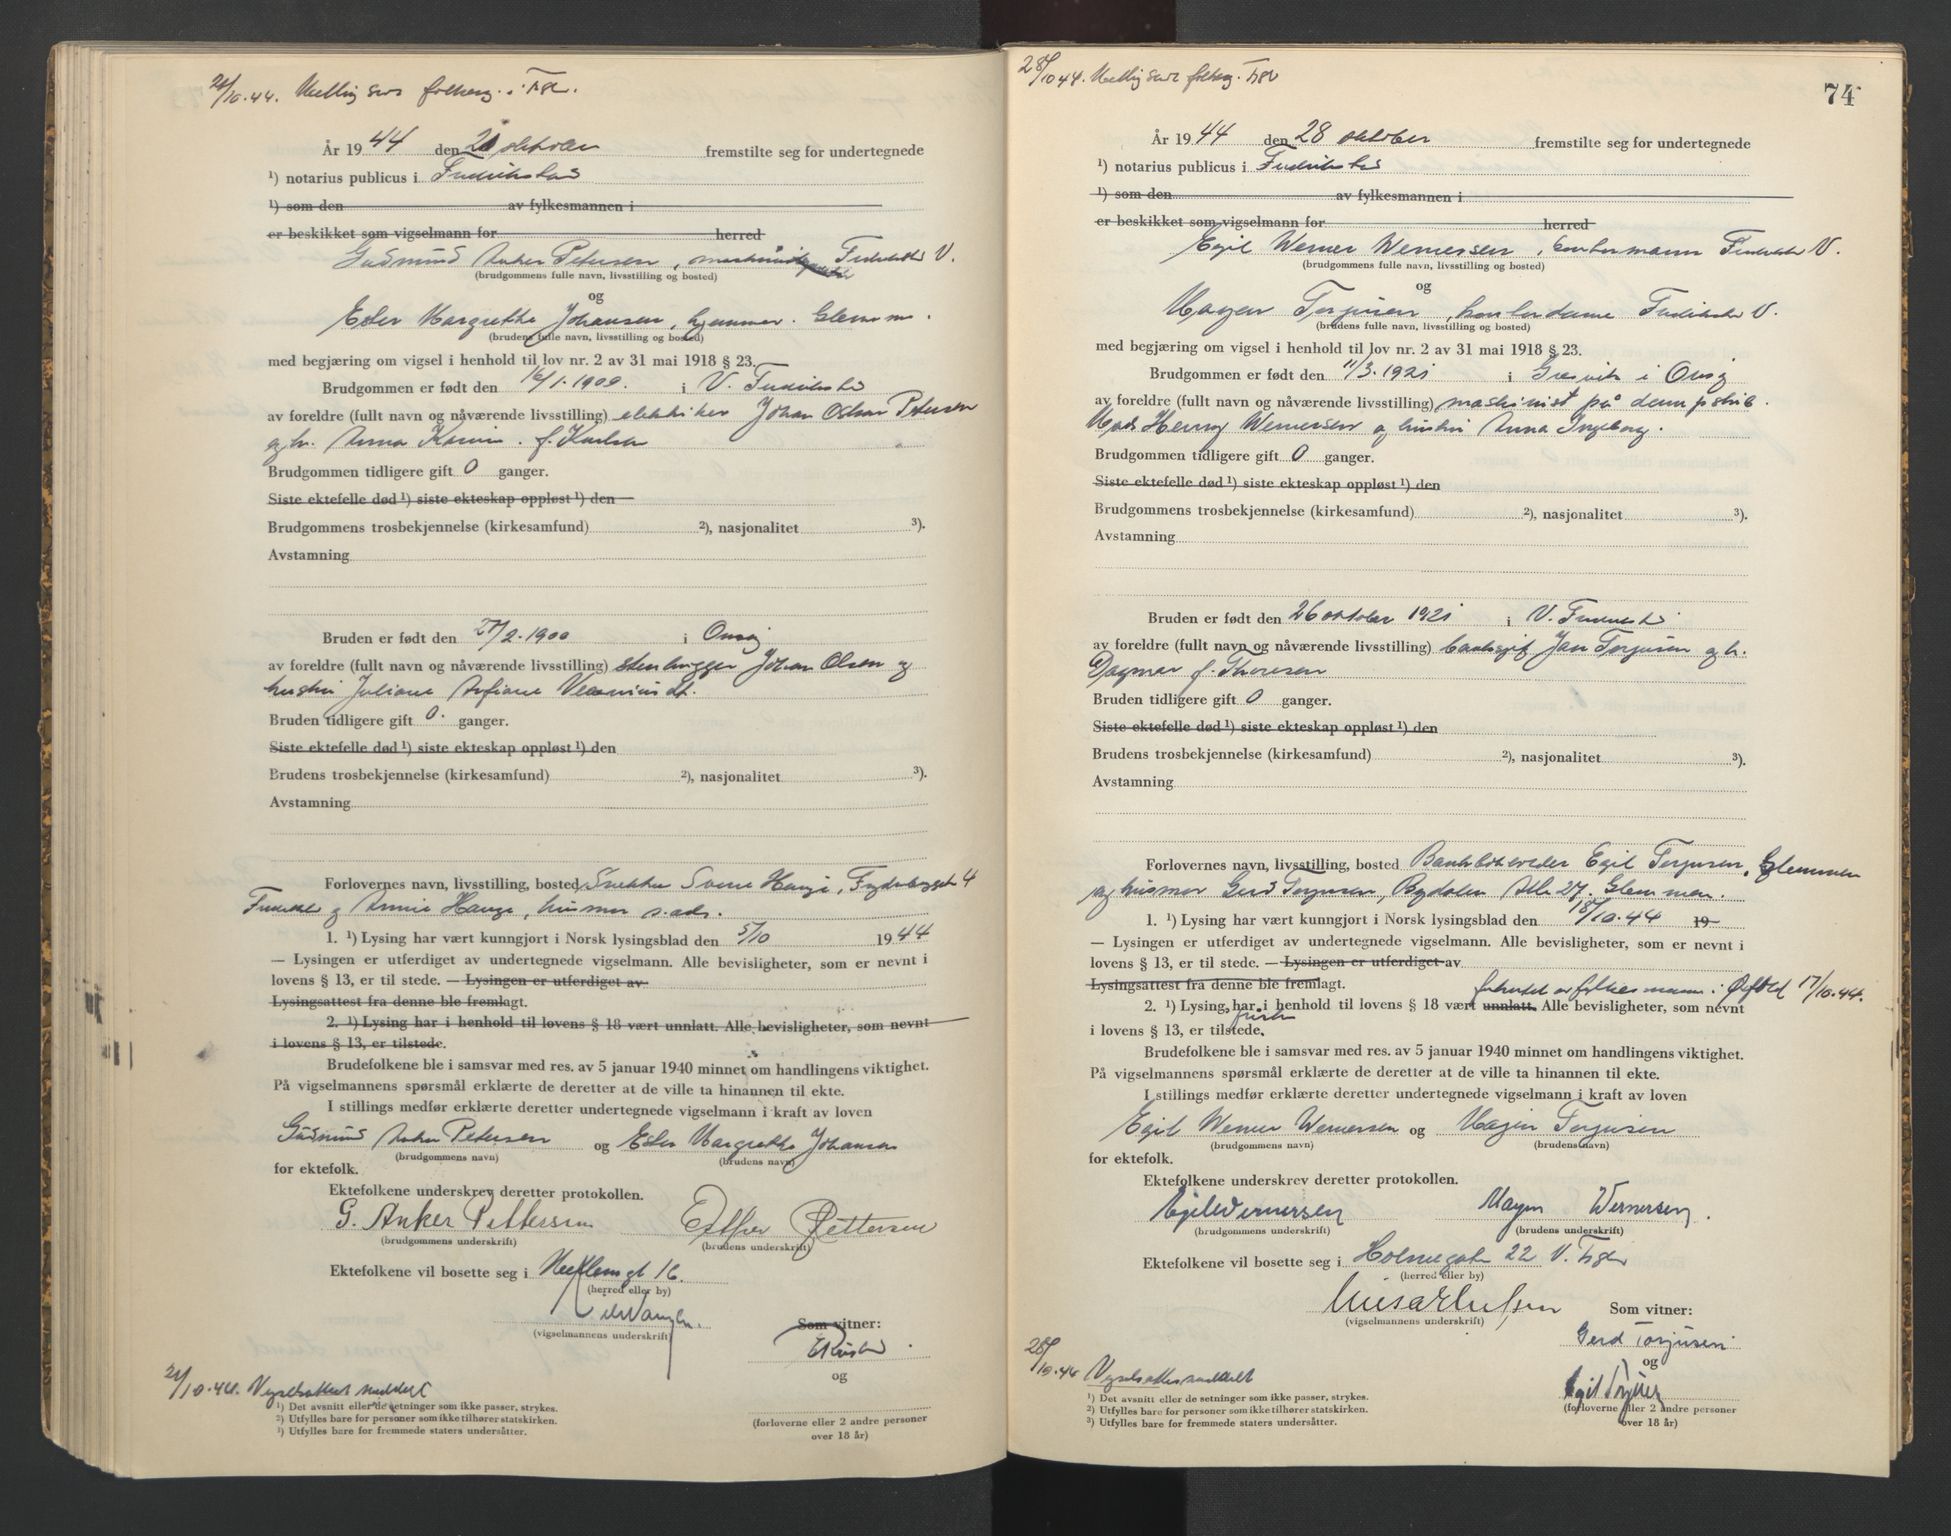 21/10.44. Melding sendt folkereg. i Fstd.
År 1944 den 21 oktober fremstilte seg for undertegnede
¹) notarius publicus i Fredrikstad
¹) som den av fylkesmannen i
er beskikket som vigselmann for herred
Gudmund Anker Petersen, Fredrikstad V.
(brudgommens fulle navn, livsstilling og bosted)
og
Ester Margrethe Johansen, hjemmev. Glemmen.
(brudens fulle navn, livsstilling og bosted)
med begjæring om vigsel i henhold til lov nr. 2 av 31 mai 1918 § 23.
Brudgommen er født den 16/1.1909. i V. Fredrikstad
av foreldre (fullt navn og nåværende livsstilling) elektriker Johan Oskar Petersen
og h. Anna Karin f. Karlsen
Brudgommen tidligere gift 0 ganger.
Siste ektefelle død ¹) siste ekteskap oppløst ¹) den
Brudgommens trosbekjennelse (kirkesamfund) ²), nasjonalitet ³).
Avstamning
Bruden er født den 27/2.1900 i Onsøy
av foreldre (fullt navn og nåværende livsstilling) stenhugger Johan Olsen og
hustru Juliane
Bruden tidligere gift 0. ganger.
Siste ektefelle død ¹) siste ekteskap oppløst ¹) den
Brudens trosbekjennelse (kirkesamfund) ²), nasjonalitet ³).
Avstamning
Forlovernes navn, livsstilling, bosted Snekker Hauge, 4
og Annie Hauge, husmor s. ads.
1. ¹) Lysing har vært kunngjort i Norsk lysingsblad den 5/10 1944
— Lysingen er utferdiget av undertegnede vigselmann. Alle bevisligheter, som er nevnt i
lovens § 13, er til stede. — Lysingen er utferdiget av
Lysingsattest fra denne ble fremlagt.
2. ¹) Lysing har i henhold til lovens § 18 vært unnlatt. Alle bevisligheter, som nevnt
i lovens § 13, er tilstede.
Brudefolkene ble i samsvar med res. av 5 januar 1940 minnet om handlingens viktighet.
På vigselmannens spørsmål erklærte de deretter at de ville ta hinannen til ekte.
I stillings medfør erklærte deretter undertegnede vigselmann i kraft av loven
Gudmund Anker Petersen og Ester Margrethe Johansen
(brudgommens navn) (brudens navn)
for ektefolk.
Ektefolkene underskrev deretter protokollen.
G. Anker Pettersen Esther Pettersen
(brudgommens underskrift) (brudens underskrift)
Ektefolkene vil bosette seg i 16.
(herred eller by)
(vigselmannens underskrift)
Som vitner:
og
(forloverne eller 2 andre personer
over 18 år)
21/10.44. Vigselsattest meddelt
¹) Det avsnitt eller de setninger som ikke passer, strykes.
²) Utfylles bare for personer som ikke tilhører statskirken.
³) Utfylles bare for fremmede staters undersåtter.
28/10 44. Melding sendt folkereg. Fstd
74
År 1944 den 28 oktober fremstilte seg for undertegnede
¹) notarius publicus i Fredrikstad
¹) som den av fylkesmannen i
er beskikket som vigselmann for herred
Egil Werner Wernersen, kontormann Fredrikstad V.
(brudgommens fulle navn, livsstilling og bosted)
og
Magen Torjusen, kontordame Fredrikstad V.
(brudens fulle navn, livsstilling og bosted)
med begjæring om vigsel i henhold til lov nr. 2 av 31 mai 1918 § 23.
Brudgommen er født den 11/3.1921 i Gresvik i Onsøy
av foreldre (fullt navn og nåværende livsstilling) maskinist på dampskib
Mads Henry Wernersen og hustru Anna Ingeborg.
Brudgommen tidligere gift 0 ganger.
Siste ektefelle død ¹) siste ekteskap oppløst ¹) den
Brudgommens trosbekjennelse (kirkesamfund) ²), nasjonalitet ³).
Avstamning
Bruden er født den 26 oktober 1921 i V. Fredrikstad
av foreldre (fullt navn og nåværende livsstilling) banksjef Jan Torjusen og h.
Dagmar f. Thoresen
Bruden tidligere gift 0 ganger.
Siste ektefelle død ¹) siste ekteskap oppløst ¹) den
Brudens trosbekjennelse (kirkesamfund) ²), nasjonalitet ³).
Avstamning
Forlovernes navn, livsstilling, bosted Bankbokholder Egil Torjusen, Glemmen
og husmor Gerd Torjusen, Bydalen Alle 27. Glemmen.
1. ¹) Lysing har vært kunngjort i Norsk lysingsblad den 18/10.44 19
— Lysingen er utferdiget av undertegnede vigselmann. Alle bevisligheter, som er nevnt i
lovens § 13, er til stede. — Lysingen er utferdiget av
Lysingsattest fra denne ble fremlagt. forkortet av fylkesmannen i Østfold 17/10.44.
2. ¹) Lysings frist har i henhold til lovens § 18 vært unnlatt. Alle bevisligheter, som nevnt
i lovens § 13, er tilstede.
Brudefolkene ble i samsvar med res. av 5 januar 1940 minnet om handlingens viktighet.
På vigselmannens spørsmål erklærte de deretter at de ville ta hinannen til ekte.
I stillings medfør erklærte deretter undertegnede vigselmann i kraft av loven
Egil Werner Wernersen og Magen Torjusen
(brudgommens navn) (brudens navn)
for ektefolk.
Ektefolkene underskrev deretter protokollen.
Egil Wernersen Magen Wernersen.
(brudgommens underskrift) (brudens underskrift)
Ektefolkene vil bosette seg i Holmegate 22 V. Fstd
(herred eller by)
(vigselmannens underskrift)
Som vitner:
Gerd Torjusen
og
Egil Torjusen
(forloverne eller 2 andre personer
over 18 år)
28/10.44 Vigselsattest meddelt
¹) Det avsnitt eller de setninger som ikke passer, strykes.
²) Utfylles bare for personer som ikke tilhører statskirken.
³) Utfylles bare for fremmede staters undersåtter.